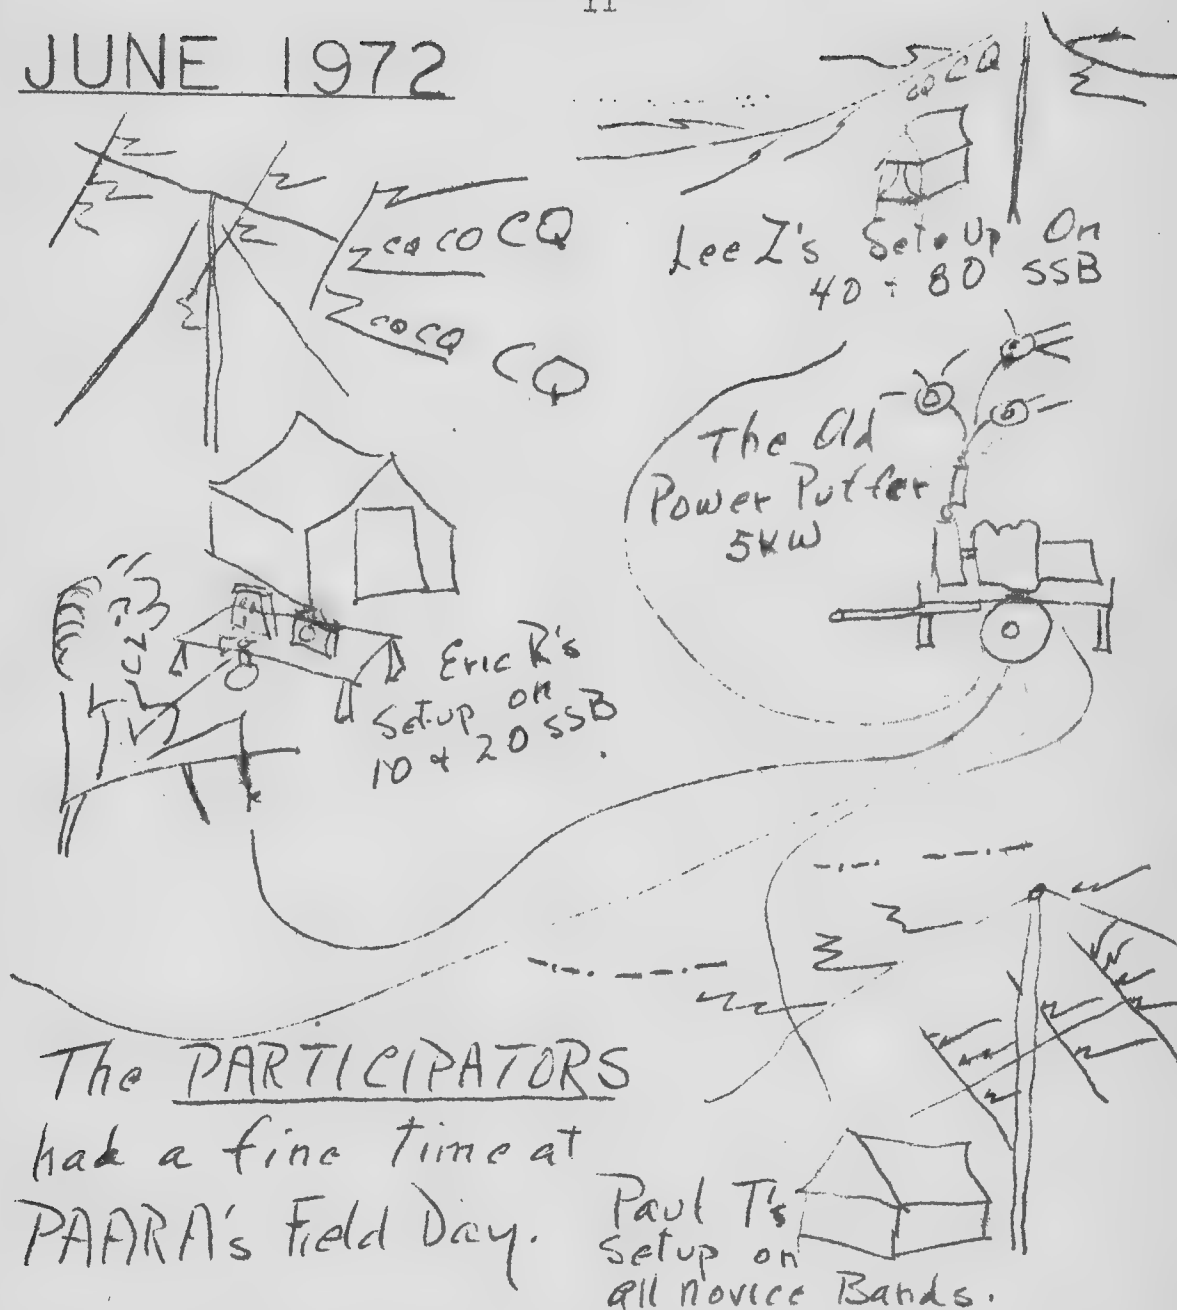 11
JUNE 1972
CQ CQ
Lee Z's Set-up On
40 + 80 SSB
CQ CQ CQ
CQ CQ CQ
The Old
Power Putffer
5KW
Eric R's
Set-up on
10 & 20 SSB
The PARTICIPATORS
had a fine time at
PAARA's Field Day.
Paul T's
Setup on
all novice Bands.